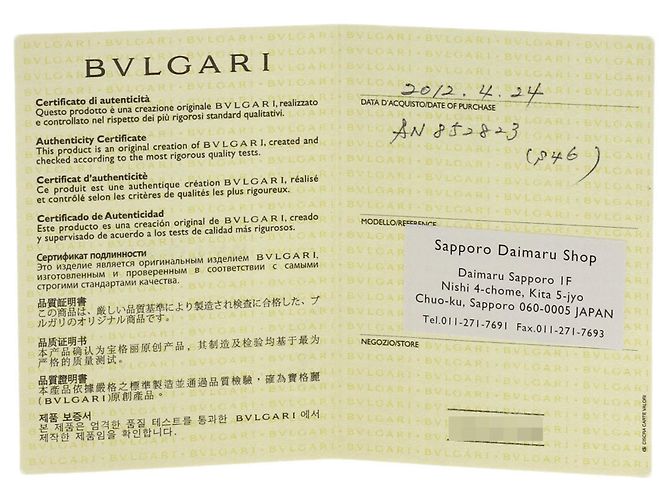 BVLGARI
Certificato di autenticità
Questo prodotto è una creazione originale BVLGARI, realizzato
e controllato nel rispetto dei più rigorosi standard qualitativi.
Authenticity Certificate
This product is an original creation of BVLGARI, created and
checked according to the most rigorous quality tests.
Certificat d'authenticité
Ce produit est une authentique création BVLGARI, réalisé
et contrôlé selon les critères de qualités les plus rigoureux.
Certificado de Autenticidad
Este producto es una creación original de BVLGARI, creado
y supervisado de acuerdo a los tests de calidad más rigurosos.
Сертификат подлинности
Это изделие является оригинальным изделием BVLGARI,
изготовленным и проверенным в соответствии с самыми
строгими стандартами качества.
品質証明書
この商品は、厳しい品質基準により製造され検査に合格した、ブ
ルガリのオリジナル商品です。
品质证明书
本产品确认为宝格丽原创产品，其制造及检验均基于最为
严格的质量测试。
品質證明書
本產品依據嚴格之標準製造並通過品質檢驗，確為寶格麗
(BVLGARI)原創產品。
제품 보증서
본 제품은 엄격한 품질 테스트를 통과한 BVLGARI 에서
제작한 제품임을 확인합니다.
2012.4.24
DATA D'ACQUISTO/DATE OF PURCHASE
AN 852823
(S46)
MODELLO/REFERENCE
Sapporo Daimaru Shop
Daimaru Sapporo 1F
Nishi 4-chome, Kita 5-jyo
Chuo-ku, Sapporo 060-0005 JAPAN
Tel.011-271-7691 Fax.011-271-7693
NEGOZIO/STORE